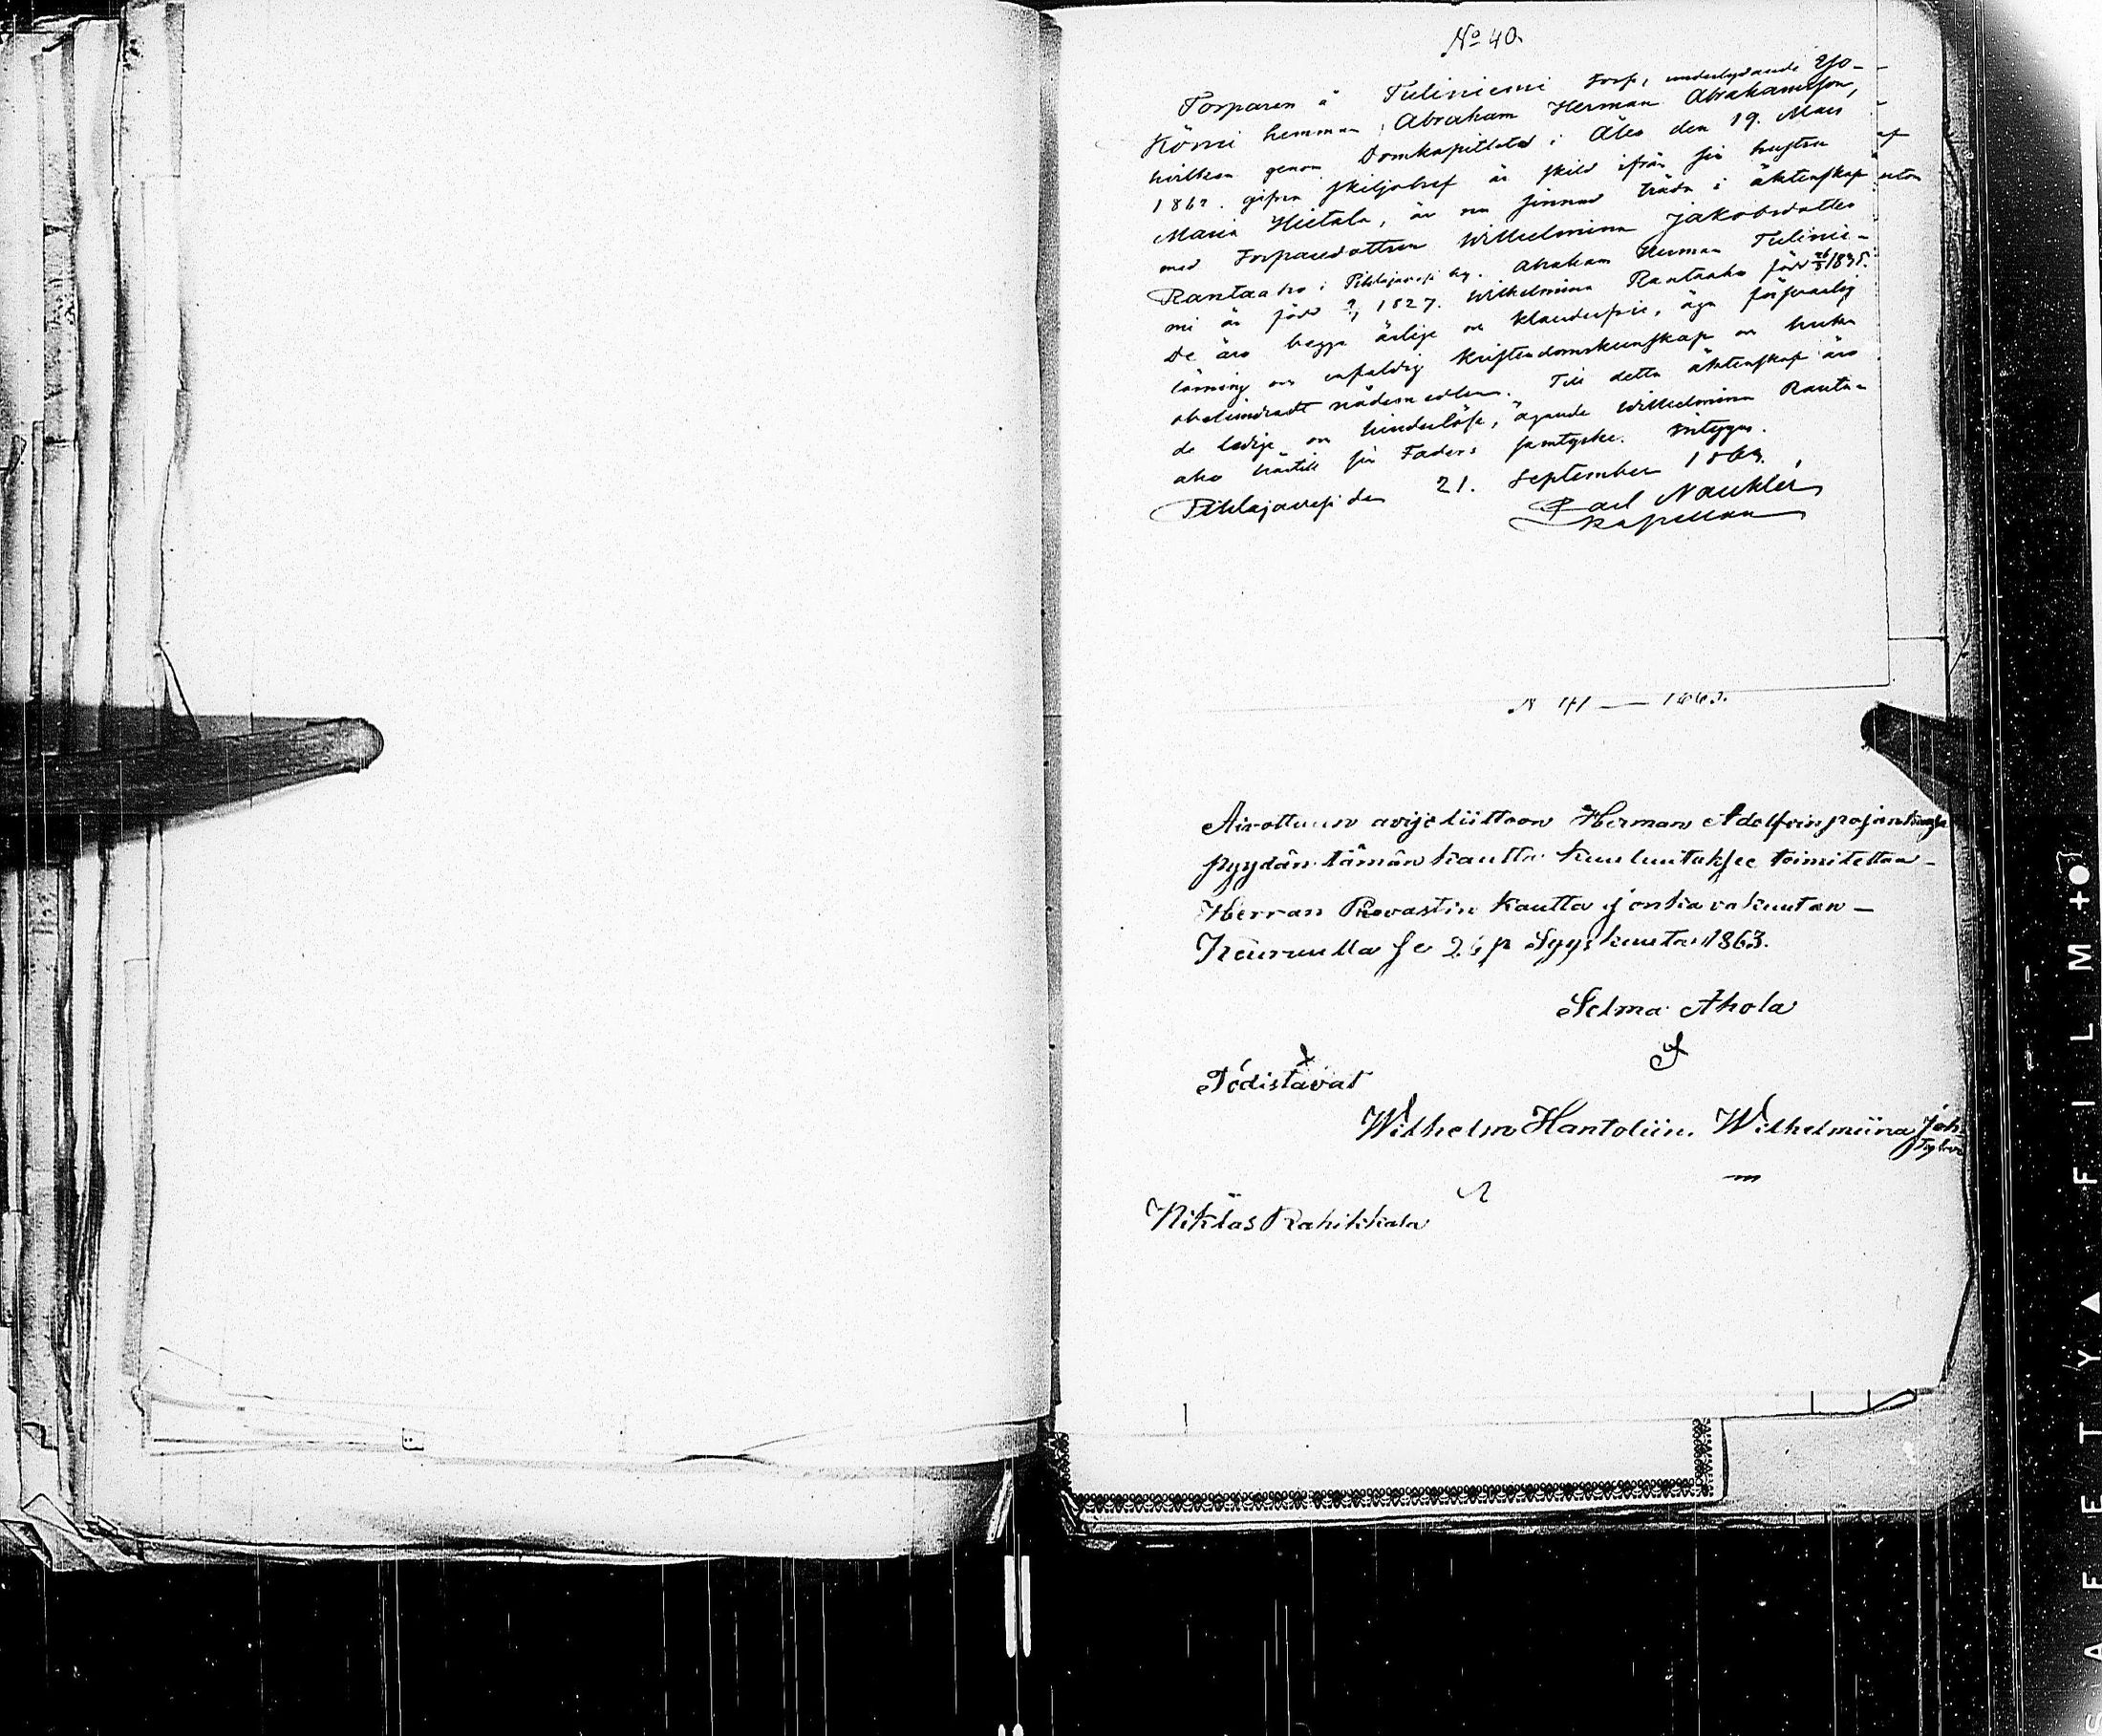 No 40.
Torparen å Tuliniemi torp, underlydande Yö-
Körni hemman, Abraham Herman Abrahamsson,
hvilken genom Domkapitlets i Åbo den 19. Mars
186 gifna skiljobref är skild ifrån sin hustru
Maria Hietala, är nu sinnad träda i äktenskap
med Torparedottren Wilhelmina Jakobsdotter
Rantaaho i Pihlajavesi by. Abraham Herman Tulinie-
mi är född 1827. Wilhelmina Rantaaho född 1835.
De äro begge ärlige och klanderfrie, äga försvarlig
läsning och enfaldig kristendomskunskap och bruka
obehindradt nådemedlen. Till detta äktenskap äro
de ledige och hinderlöse, ägande Wilhelmina Ranta-
aho härtill sin Faders samtycke. intygar.
Pihlajavesi den 21. September 186
Carl Naukler
Kapellan
N 41 — 1863.
Aivottuun avijeliittoon Herman Adolfvin pojan kansa
pyydän tämän kautta kuuluutukset toimitettaa-
Herran Provastin kautta jonka vakuutan -
Keuruulla se p Syyskuuta 1863.
Selma Ahola
Todistavat
Wilhelm Hantoliin. Wilhelmiina Joh
Niklas Rahikkala
SAFETY FILM